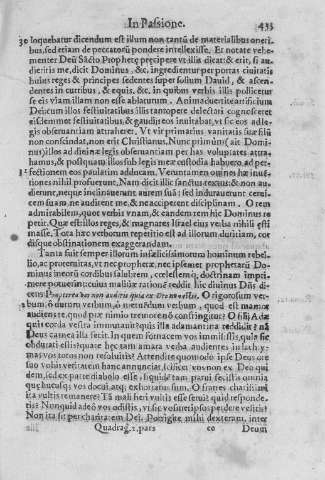 In Passione. 433
30 loquebatur dicendum est illum non tantũ de materialibus oneri-
bus, sed etiam de peccatorũ pondere intellexisse. Et notate vehe-
menter Deũ Sãcto Prophetę pręcipere vt illis dicat: & erit, si au-
dieritis me, dicit Dominus, &c. ingredientur per portas ciuitatis
huius reges & principes sedentes super solium Dauid, & ascen-
dentes in curribus, & equis, &c. in quibus verbis illis pollicetur
se eis viam illam non esse ablaturum. Animaduertite artificium
Dei: cum illos festiuitatibus illis tantopere delectari cognosceret
eisdemmet festiuitatibus, & gaudijs eos inuitabat, vt sic eos ad le-
gis obseruantiam attraheret. Vt vir primarius vanitatis suæ filũ
non conscindat, non erit Christianus. Nunc primũ (ait Domi-
nus) illos ad diuinæ legis obseruantiam per has voluptates attra-
hamus, & postquam illos sub legis meæ custodia habuero, ad per-
31 fectionem eos paulatim adducam. Veruntamen omnes hæ inui-
tationes nihil profuerunt, Nam dicit illic sanctus textus: & non au-
dierunt, neque inclinauerunt aurem suã: sed indurauerunt cerui-
cem suam, ne audirent me, & ne acciperent disciplinam. O rem
admirabilem, quot verbis vnam, & eandem rem hic Dominus re
petit. Quæ est illos reges, & magnates Israel eius verba nihili esti
masse. Tota hæc verborum repetitio est ad illorum duritiam, cor
disque obstinationem exaggerandam.
Tanta fuit semper illorum infælicissimorum hominum rebel-
lio, ac proteruitas, vt nec prophetæ, nec ipsemet prophetarũ Do-
minus meorũ cordibus salubrem, cęlestemq; doctrinam impri-
mere potuerint: cuius maliuiæ rationẽ reddit hic diuinus Dñs di-
cens Propterea vos non auditis quia ex Deo non estis. O rigorosum ver-
bum, ô durum verbum, ô metuendũ verbum, quod est manice
audientes, quod præ nimio tremore nõ constringitur? O filij Adæ
quis corda vestra immutauit? quis illa adamantina reddidit? nã
Deus carnea illa fecit. In quem fornacem vos immisistis, quòd sic
obdurati estis? quare hęc tam amara verba audientes in lachry-
mas vos totos non resoluitis? Attendite quomodo ipse Deus ore
suo vobis veritatem hanc annunciat, scilicet vos non ex Deo qui
dem, sed ex parte diaboli esse: siquidẽ tam parui fecistis omnia
quę hucusq; vos docui, atq; exhortatus sum. O fratres charissimi
ita vultis remanere? Tã mali heri vultis esse serui? quid responde-
tis? Nunquid adeò vos odistis,
Non ita sit
per charitatem Dei. Porrigite mihi dexteram, inter
Quadrag. 2. pars ee Deum